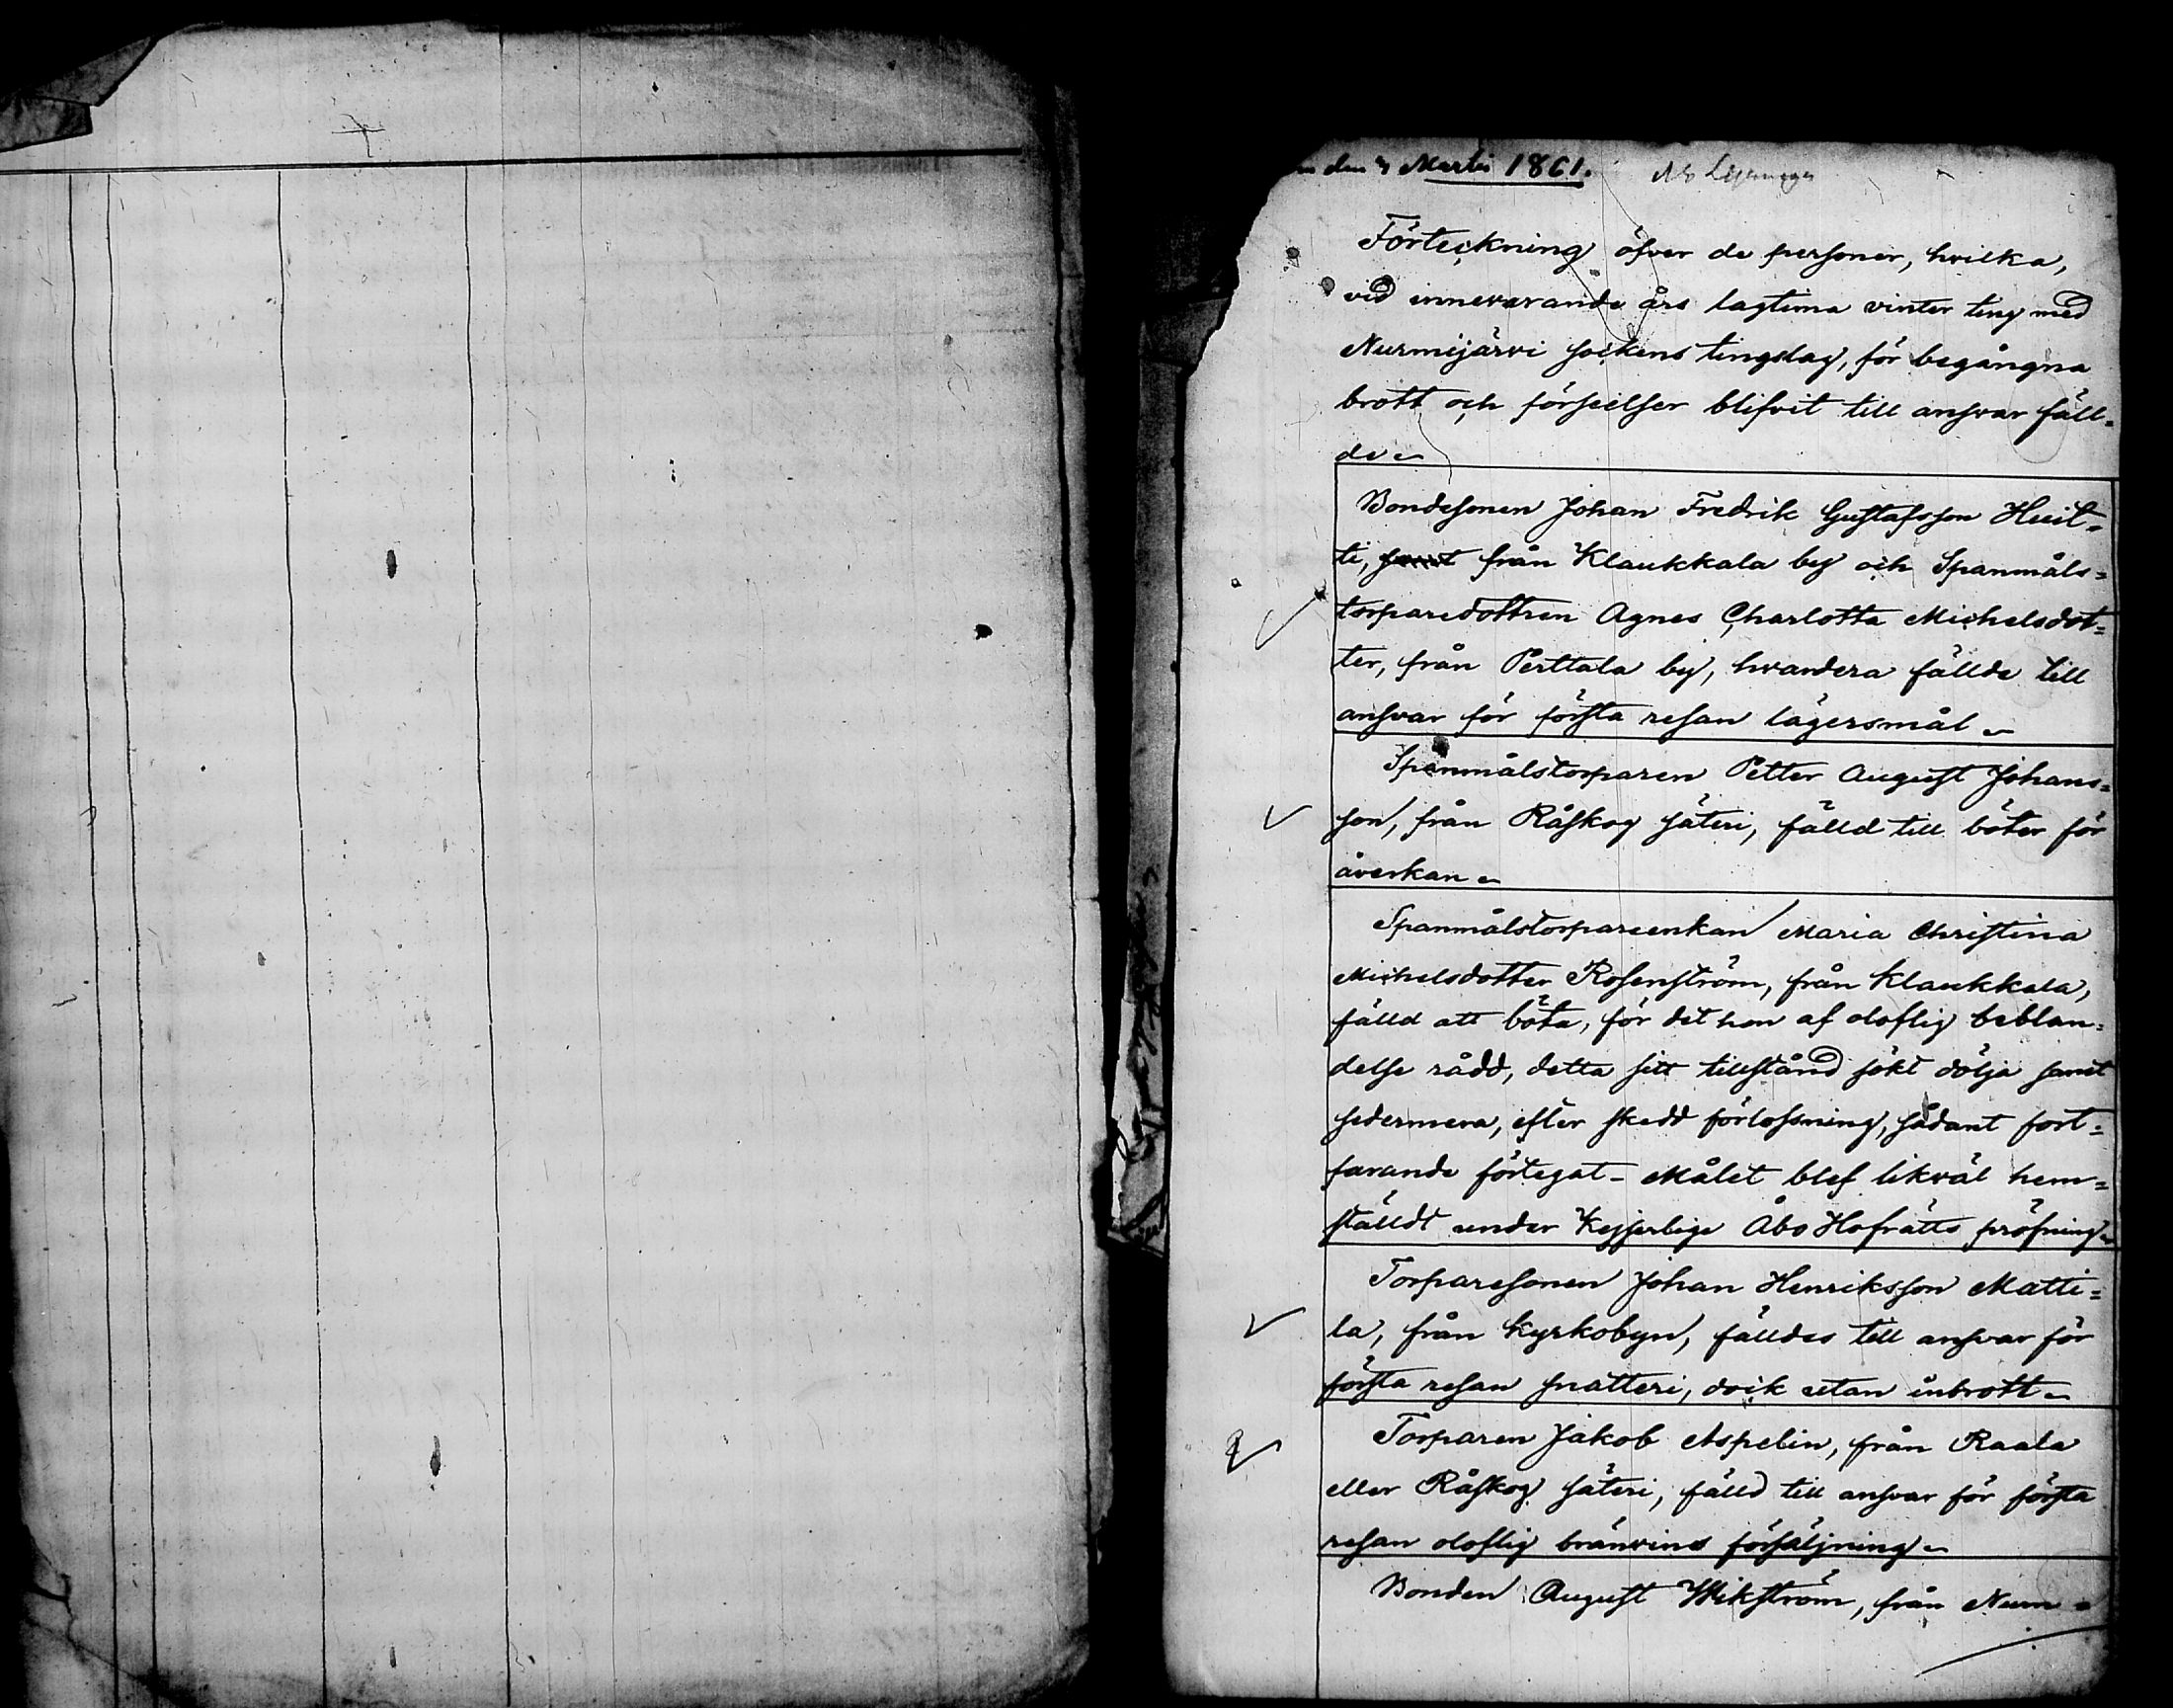 den Martii 1861.
Förteckning öfver de personer, hvilka,
vid innevarande års lagtima vinter ting med
Nurmijärvi sockens tingslag, för begångna
brott och förseelser blifvit till ansvar fäll-
de.
Bondesonen Johan Fredrik Gustafsson Huil-
ti, samt från Klaukkala by och Spanmåls-
torparedottren Agnes Charlotta Michelsdot-
ter, från Perttala by, hvardera fällde till
ansvar för första resan lägersmål.
Spanmålstorparen Petter August Johans-
son, från Råskog säteri, fälld till böter för
åverkan.
Spanmålstorpareenkan Maria Christina
Michelsdotter Rosenström, från Klaukkala,
fälld att böta, för det hon af oloflig beblan-
delse rådd, detta sitt tillstånd sökt dölja samt
sedermera, efter skedd förlossning, sådant fort-
farande förtegat. Målet blef likväl hem-
ställdt under Kejserlige Åbo Hofrätts pröfning.
Torparesonen Johan Henriksson Matti-
la, från Kyrkobyn, fälldes till ansvar för
första resan snatteri, dock utan inbrott.
Torparen Jakob Aspelin, från Raala
eller Råskog säteri, fälld till ansvar för första
resan oloflig bränvins försäljning.
Bonden August Wikström, från Num-